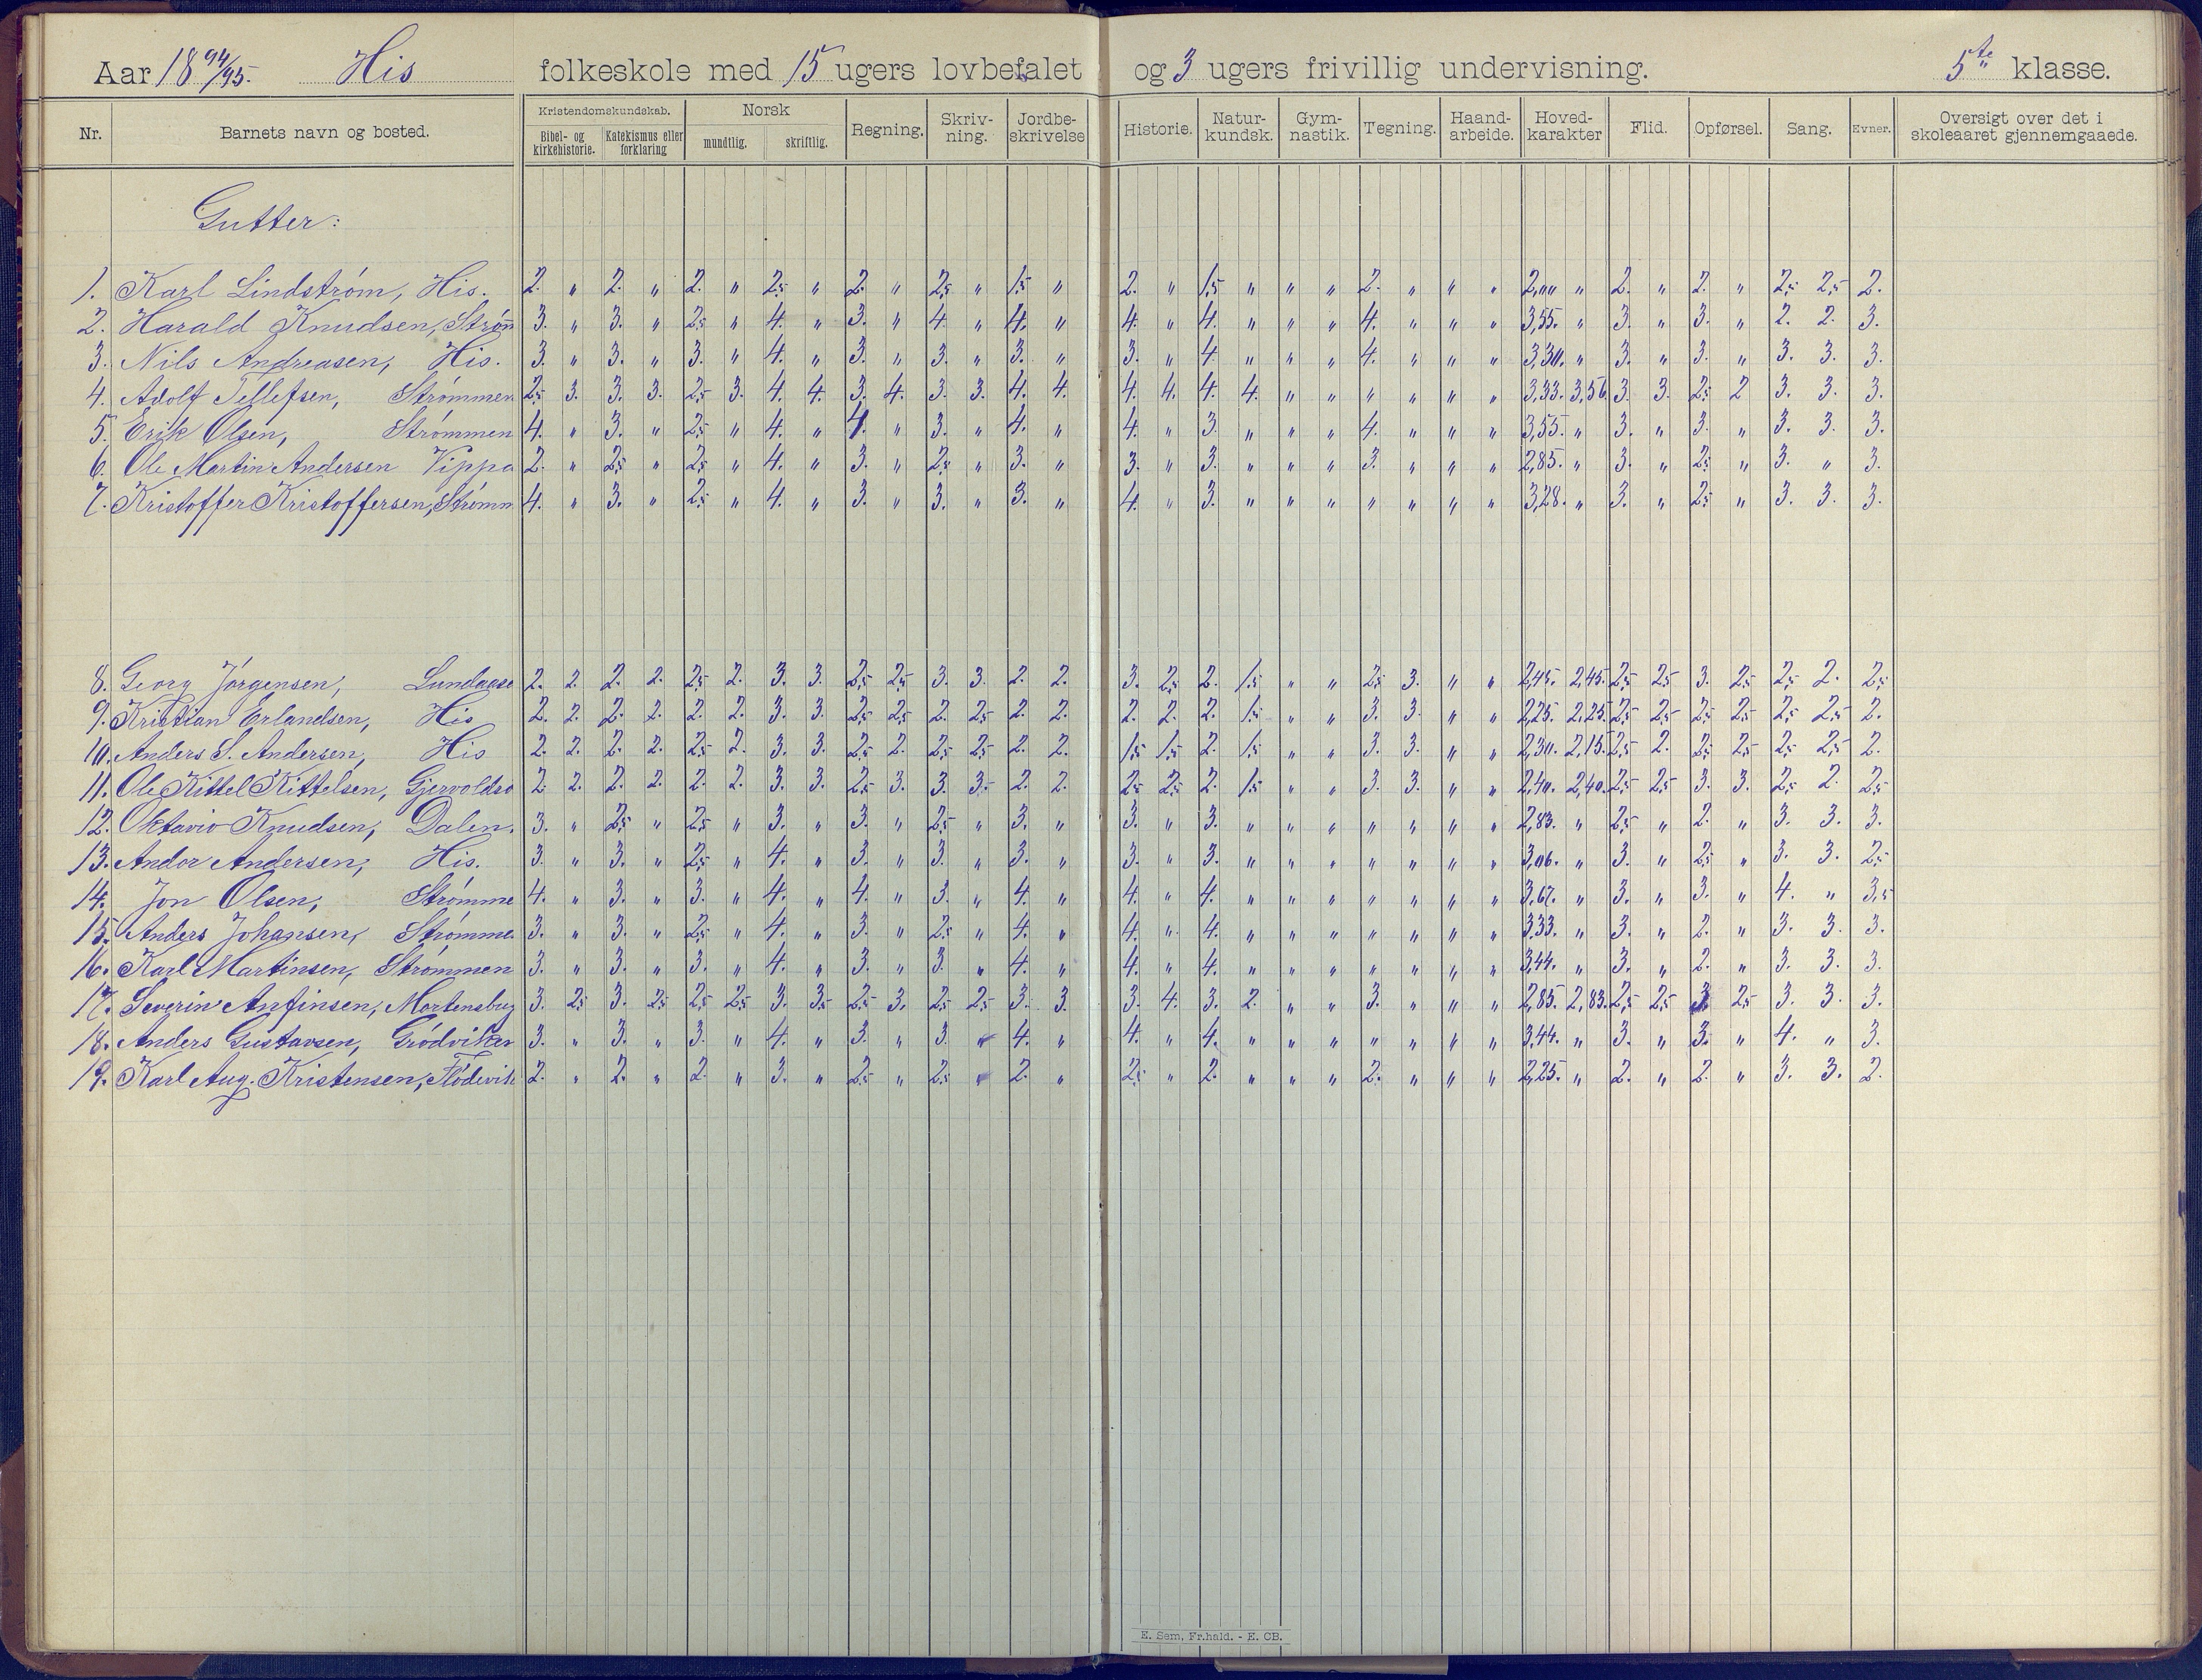 Aar 18 94/95. His folkeskole med 15 ugers lovbefalet og 3 ugers frivillig undervisning. 5te klasse.
Nr. Barnets navn og bosted. Kristendomskundskab. Bibel- og kirkehistorie. Katekismus eller forklaring Norsk mundtlig. skriftlig. Regning. Skriv-ning. Jordbe-skrivelse Historie. Natur-kundsk. Gym-nastik. Tegning. Haand-arbeide. Hoved-karakter Flid. Opførsel. Sang. Evner. Oversigt over det i skoleaaret gjennemgaaede.
Gutter:
1. Karl Lindstrøm, His. 2. " 2. " 2. " 2,5 " 2. " 2,5 " 1,5 " 2. " 1,5 " " " 2. " " " 2,00 " 2. " 2. " 2,5 2,5 2.
2. Harald Knudsen, Strøm 3. " 3. " 2,5 " 4. " 3. " 4. " 4. " 4. " 4. " " " 4. " " " 3,55. " 3. " 3. " 2. 2. 3.
3. Nils Andreasen, His. 3. " 3. " 3. " 4. " 3. " 3. " 3. " 3. " 4. " " " 4. " " " 3,30. " 3. " 3. " 3. 3. 3.
4. Adolf Tellefsen, Strømmen 2,5 3. 3. 3. 2,5 3. 4. 4. 3. 4. 3. 3. 4. 4. 4. 4. 4. 4. " " " " " " 3,33. 3,56. 3. 3. 2,5 2 3. 3. 3.
5. Erik Olsen, Strømmen 4. " 3. " 2,5 " 4. " 4. " 3. " 4. " 4. " 3. " " " 4. " " " 3,55. " 3. " 3. " 3. 3. 3.
6. Ole Martin Andersen Vippa 2. " 2,5 " 2,5 " 4. " 3. " 2,5 " 3. " 3. " 3. " " " 3. " " " 2,85. " 3. " 2,5 " 3. " 3.
7. Kristoffer Kristoffersen, Strømm 4. " 3. " 2,5 " 4. " 3. " 3. " 3. " 4. " 3. " " " " " " " 3,28. " 3. " 2,5 " 3. 3. 3.
8. Georg Jørgensen, Lundaase 2. 2. 2. 2. 2,5 2. 3. 3. 2,5 2,5 3. 3. 2. 2. 3. 2,5 2. 1,5 " " 2,5 3. " " 2,45. 2,45. 2,5 2,5 3. 2,5 2,5 2. 2,5
9. Kristian Erlandsen, His 2. 2. 2. 2. 2. 2. 3. 3. 2,5 2,5 2. 2,5 2. 2. 2. 2. 2. 1,5 " " 3. 3. " " 2,25. 2,25. 2,5 2,5 2,5 2,5 2,5 2,5 2.
10. Anders S. Andersen, His 2. 2. 2. 2. 2,5 2. 3. 3. 2,5 2. 2,5 2,5 2. 2. 1,5 1,5 2. 1,5 " " 3. 3. " " 2,30. 2,15. 2,5 2. 2,5 2,5 2,5 2,5 2.
11. Ole Kittel Kittelsen, Gjervoldso 2. 2. 2. 2. 2. 2. 3. 3. 2,5 3. 3. 3. 2. 2. 2,5 2,5 2. 1,5 " " 3. 3. " " 2,40. 2,40. 2,5 2,5 3. 3. 2,5 2. 2,5
12. Oktavio Knudsen, Dalen. 3. " 2,5 " 2,5 " 3. " 3. " 2,5 " 3. " 3. " 3. " " " " " " " 2,83. " 2,5 " 2. " 3. 3. 3.
13. Andor Andersen, His. 3. " 3. " 2,5 " 4. " 3. " 3. " 3. " 3. " 3. " " " " " " " 3,06. " 3. " 2,5 " 3. 3. 2,5
14. Jon Olsen, Strømme 4. " 3. " 3. " 4. " 4. " 3. " 4. " 4. " 4. " " " " " " " 3,67. " 3. " 3. " 4. " 3,5
15. Anders Johansen, Strømme 3. " 3. " 2,5 " 4. " 3. " 2,5 " 4. " 4. " 4. " " " " " " " 3,33. " 3. " 2. " 3. 3. 3.
16. Karl Martinsen, Strømmen 3. " 3. " 3. " 4. " 3. " 3. " 4. " 4. " 4. " " " " " " " 3,44. " 3. " 2. " 3. 3. 3.
17. Severin Anfinsen, Mortensbug 3. 2,5 3. 2,5 2,5 2,5 3. 3,5 2,5 3. 2,5 2,5 3. 3. 3. 4. 3. 2. " " 3. " " " 2,85. 2,83. 2,5 2,5 3. 2,5 3. 3. 3.
18. Anders Gustavsen, Grødviken 3. " 3. " 3. " 4. " 3. " 3. " 4. " 4. " 4. " " " " " " " 3,44. " 3. " 3. " 4. " 3.
19. Karl Aug. Kristensen, Flødevik 2. " 2. " 2. " 3. " 2,5 " 2,5 " 2. " 2,5 " 2. " " " 2. " " " 2,25. " 2. " 2. " 3. 3. 2.
E. Sem, Fr.hald. - E. CB.